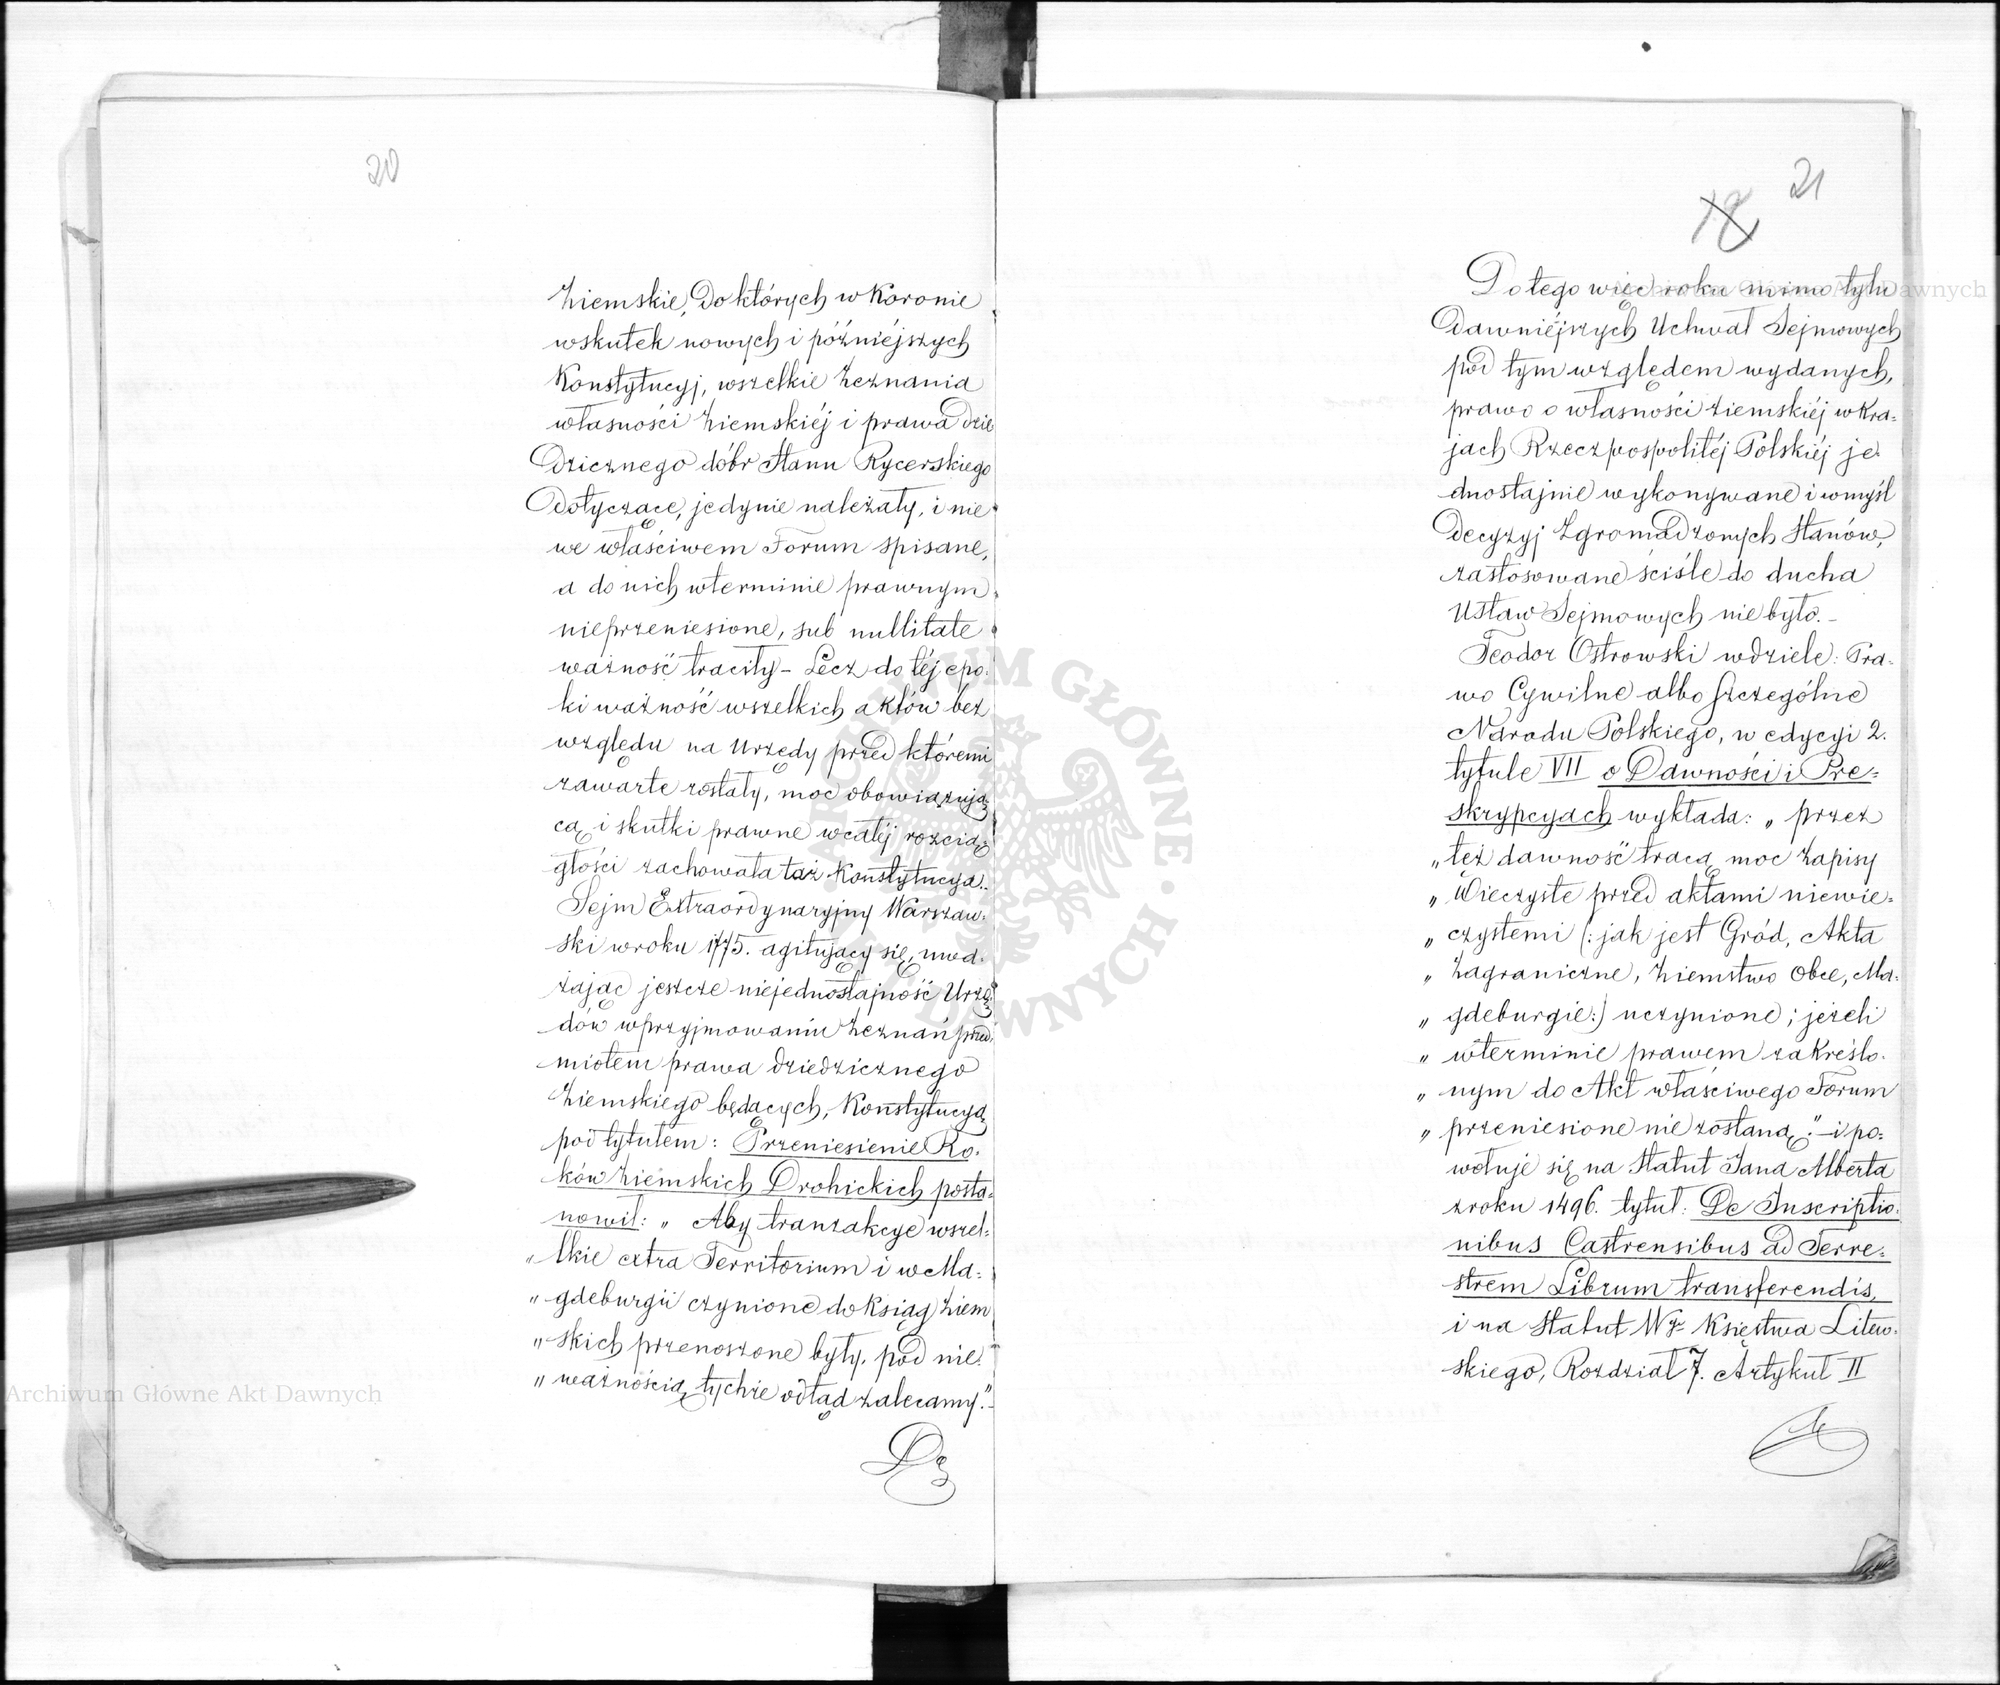 20
Ziemskie, do których w Koronie
wskutek nowych i późniéjszych
Konstytucyj, wszelkie zeznania
własności Ziemskiéj i prawa dzie
dzicznego dóbr Stanu Rycerskiego
dotyczące, jedynie należały, i nie
we właściwem Forum spisane,
a do nich w terminie prawnym
nieprzeniesione, sub nullitate
ważność traciły – Lecz do téj epo:
ki ważność wszelkich aktów bez
względu na Urzędy przed któremi
zawarte zostały, moc obowiązują:
cą i skutki prawne w całéj rozcią:
głości zachowała taż Konstytucya.
Sejm Extraordynaryjny Warszaw:
ski w roku 1775. agitujący się, uwa:
żając jeszcze niejednostajność Urzę:
dów w przyjmowaniu zeznań przed:
miotem prawa dziedzicznego
Ziemskiego będących, Konstytucyą
pod tytułem: Przeniesienie Ro:
ków Ziemskich Drohickich posta:
nowił: „ Aby tranzakcye wszel:
„ lkie extra Territorium i w Ma:
„ gdeburgii czynione do Ksiąg Ziem
„ skich przenoszone były, pod nie:
„ ważnością tychże odtąd zalecamy.”–
21
18
Do tego więc roku mimo tylu
dawniéjszych Uchwał Sejmowych
pod tym względem wydanych,
prawo o własności ziemskiéj w Kra:
jach Rzeczpospolitéj Polskiéj je:
dnostajnie wykonywane i w myśl
decyzyj Zgromadzonych Stanów,
zastosowane ściśle do ducha
Ustaw Sejmowych nie było. –
Teodor Ostrowski w dziele: Pra:
wo Cywilne albo szczególne
Narodu Polskiego, w edycyi 2.
tytule VII o Dawności i Pre:
skrypcyach wykłada: „ przez
„ też dawność tracą moc Zapisy
„ Wieczyste przed aktami niewie:
„ czystemi (: jak jest Gród, Akta
„ Zagraniczne, Ziemstwo Obce, Ma:
„ gdeburgie:) uczynione; jeżeli
„ w terminie prawem zakreślo:
„ nym do Akt właściwego Forum
„ przeniesione nie zostaną.” – i po:
wołuje się na Statut Jana Alberta
z roku 1496. tytuł: De Inscriptio:
nibus Castrensibus ad Terre:
strem Librum transferendis,
i na Statut Wg Księstwa Litew:
skiego, Rozdział 7. Artykuł II
Archiwum Główne Akt Dawnych
Archiwum Główne Akt Dawnych
ARCHIWUM GŁÓWNE AKT DAWNYCH